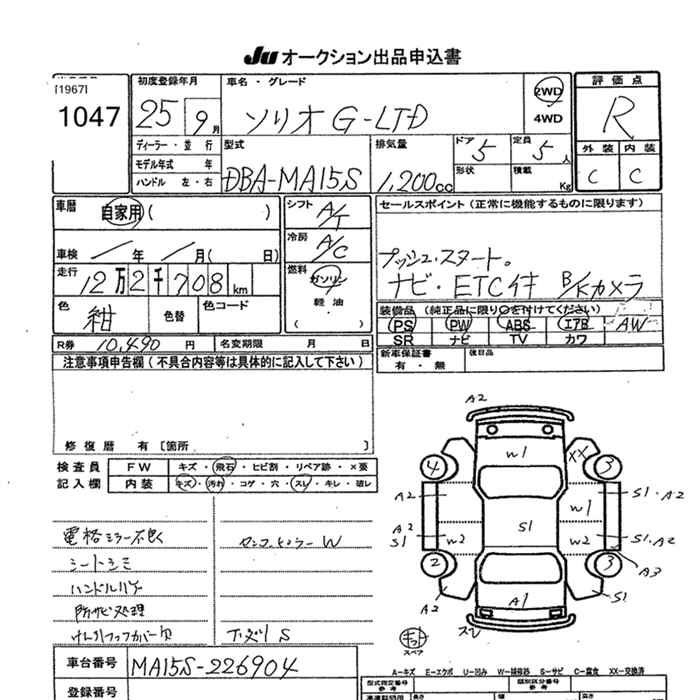 JU オークション出品申込書
[1967]
1047
初度登録年月
25 9月
ディーラー・並行
モデル年式 年
ハンドル 左・右
車名・グレード
ソリオ G-LTD
2WD
4WD
評価点
R
外装 内装
C C
型式
DBA-MA15S
排気量
1,200cc
ドア 5
形状
定員 5人
積載 Kg
車暦 自家用( )
車検 年 月( 日)
走行 12万2千708km
色 紺 色替 色コード
R券 10,490円 名変期限 月 日
シフト A/T
冷房 A/C
燃料 ガソリン
軽油
( )
セールスポイント(正常に機能するものに限ります)
プッシュ・スタート。
ナビ・ETC付 B/Kカメラ
装備品(純正品に限り○を付けてください)
PS PW ABS エアB AW
SR ナビ TV カワ
新車保証書 有・無 後日品
注意事項申告欄(不具合内容等は具体的に記入して下さい)
修復暦 有[箇所 ]
検査員 FW キズ・飛石・ヒビ割・リペア跡・×要
記入欄 内装 キズ・汚れ・コゲ・穴・スレ・キレ・凹レ
電格ミラー不良
シートシミ
ハンドルハゲ
防サビ処理
W
下ズリ S
A2
W1
4 XX 3
A2 W1 S1・A2
A2
S1 W2 S1 W2 S1・A2
2 3 A3
A2 A1 S1
スレ
キット
スペア
A−キズ E−エクボ U−凹み W−補修跡 S−サビ C−腐食 XX−交換済
車台番号 MA15S-226904
登録番号
型式指定番号
参考
類別区分番号
参考
長さ 幅 高さ